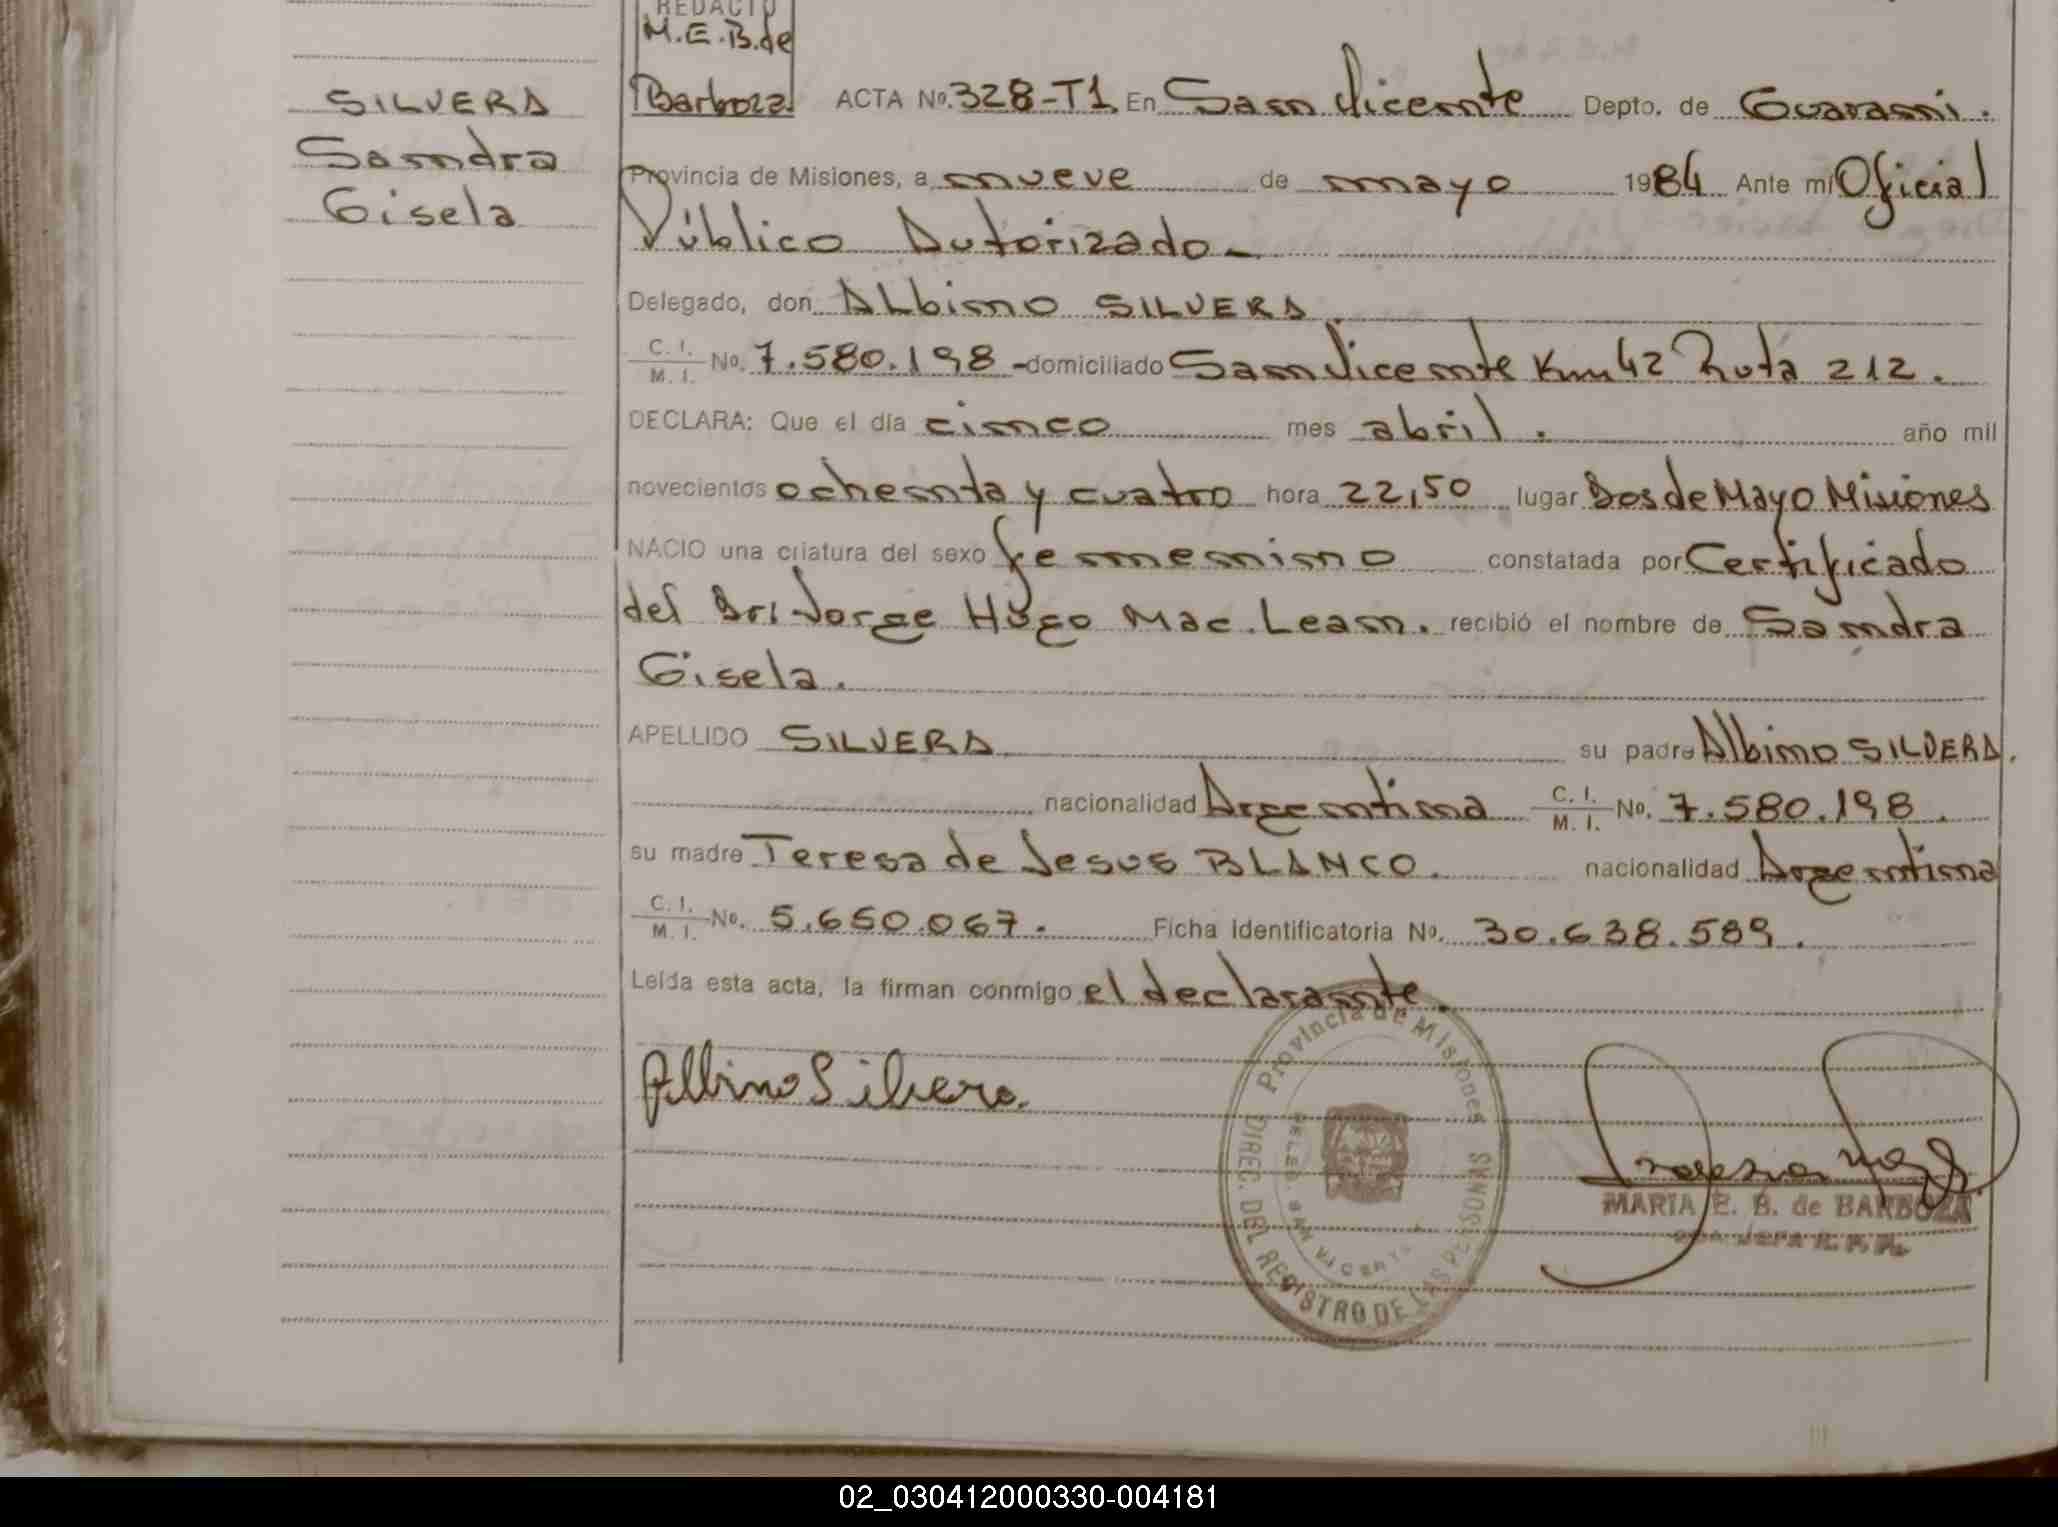 REDACTO
M.E.B.de
Barboza
SILVERA
Sandra
Gisela
ACTA No. 328-T1 En San Vicente Depto. de Guaraní.
Provincia de Misiones, a nueve de mayo 1984 Ante mí Oficial
Público Autorizado-
Delegado, don Albino SILVERA
C. I. / M. I. No. 7.580.198 - domiciliado San Vicente Km 42 Ruta 212.
DECLARA: Que el día cinco mes abril. año mil
novecientos ochenta y cuatro hora 22,50 lugar Dos de Mayo Misiones
NACIO una criatura del sexo femenino constatada por Certificado
del Dr. Jorge Hugo Mac. Lean. recibió el nombre de Sandra
Gisela.
APELLIDO SILVERA su padre Albino SILVERA.
nacionalidad Argentina C. I. / M. I. No. 7.580.198.
su madre Teresa de Jesus BLANCO. nacionalidad Argentina
C. I. / M. I. No. 5.650.067. Ficha Identificatoria No. 30.638.589.
Leída esta acta, la firman conmigo el declarante.
Albino Silvera.
Provincia de Misiones
DIREC. DEL REGISTRO DE LAS PERSONAS
DELEG. SAN VICENTE
MARIA E. B. de BARBOZA
JEFA R. P. P.
02_030412000330-004181